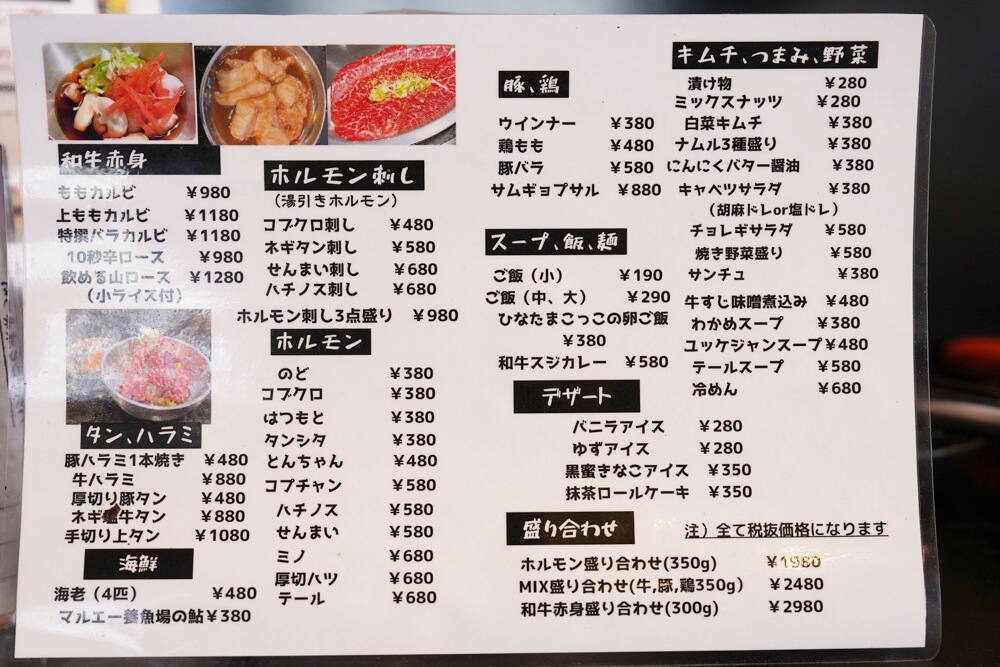 和牛赤身
ももカルビ ¥980
上ももカルビ ¥1180
特撰バラカルビ ¥1180
10秒辛ロース ¥980
飲める山ロース ¥1280
（小ライス付）
タン、ハラミ
豚ハラミ1本焼き ¥480
牛ハラミ ¥880
厚切り豚タン ¥480
ネギ塩牛タン ¥880
手切り上タン ¥1080
海鮮
海老（4匹） ¥480
マルエー養魚場の鮎¥380
ホルモン刺し
（湯引きホルモン）
コブクロ刺し ¥480
ネギタン刺し ¥580
せんまい刺し ¥680
ハチノス刺し ¥680
ホルモン刺し3点盛り ¥980
ホルモン
のど ¥380
コブクロ ¥380
はつもと ¥380
タンシタ ¥380
とんちゃん ¥480
コプチャン ¥580
ハチノス ¥580
せんまい ¥580
ミノ ¥680
厚切ハツ ¥680
テール ¥680
豚、鶏
ウインナー ¥380
鶏もも ¥480
豚バラ ¥580
サムギョプサル ¥880
スープ、飯、麺
ご飯（小） ¥190
ご飯（中、大） ¥290
ひなたまこっこの卵ご飯
¥380
和牛スジカレー ¥580
デザート
バニラアイス ¥280
ゆずアイス ¥280
黒蜜きなこアイス ¥350
抹茶ロールケーキ ¥350
キムチ、つまみ、野菜
漬け物 ¥280
ミックスナッツ ¥280
白菜キムチ ¥380
ナムル3種盛り ¥380
にんにくバター醤油 ¥380
キャベツサラダ ¥380
（胡麻ドレor塩ドレ）
チョレギサラダ ¥580
焼き野菜盛り ¥580
サンチュ ¥380
牛すじ味噌煮込み ¥480
わかめスープ ¥380
ユッケジャンスープ¥480
テールスープ ¥580
冷めん ¥680
盛り合わせ
注）全て税抜価格になります
ホルモン盛り合わせ(350g) ¥1980
MIX盛り合わせ(牛,豚,鶏350g) ¥2480
和牛赤身盛り合わせ(300g) ¥2980